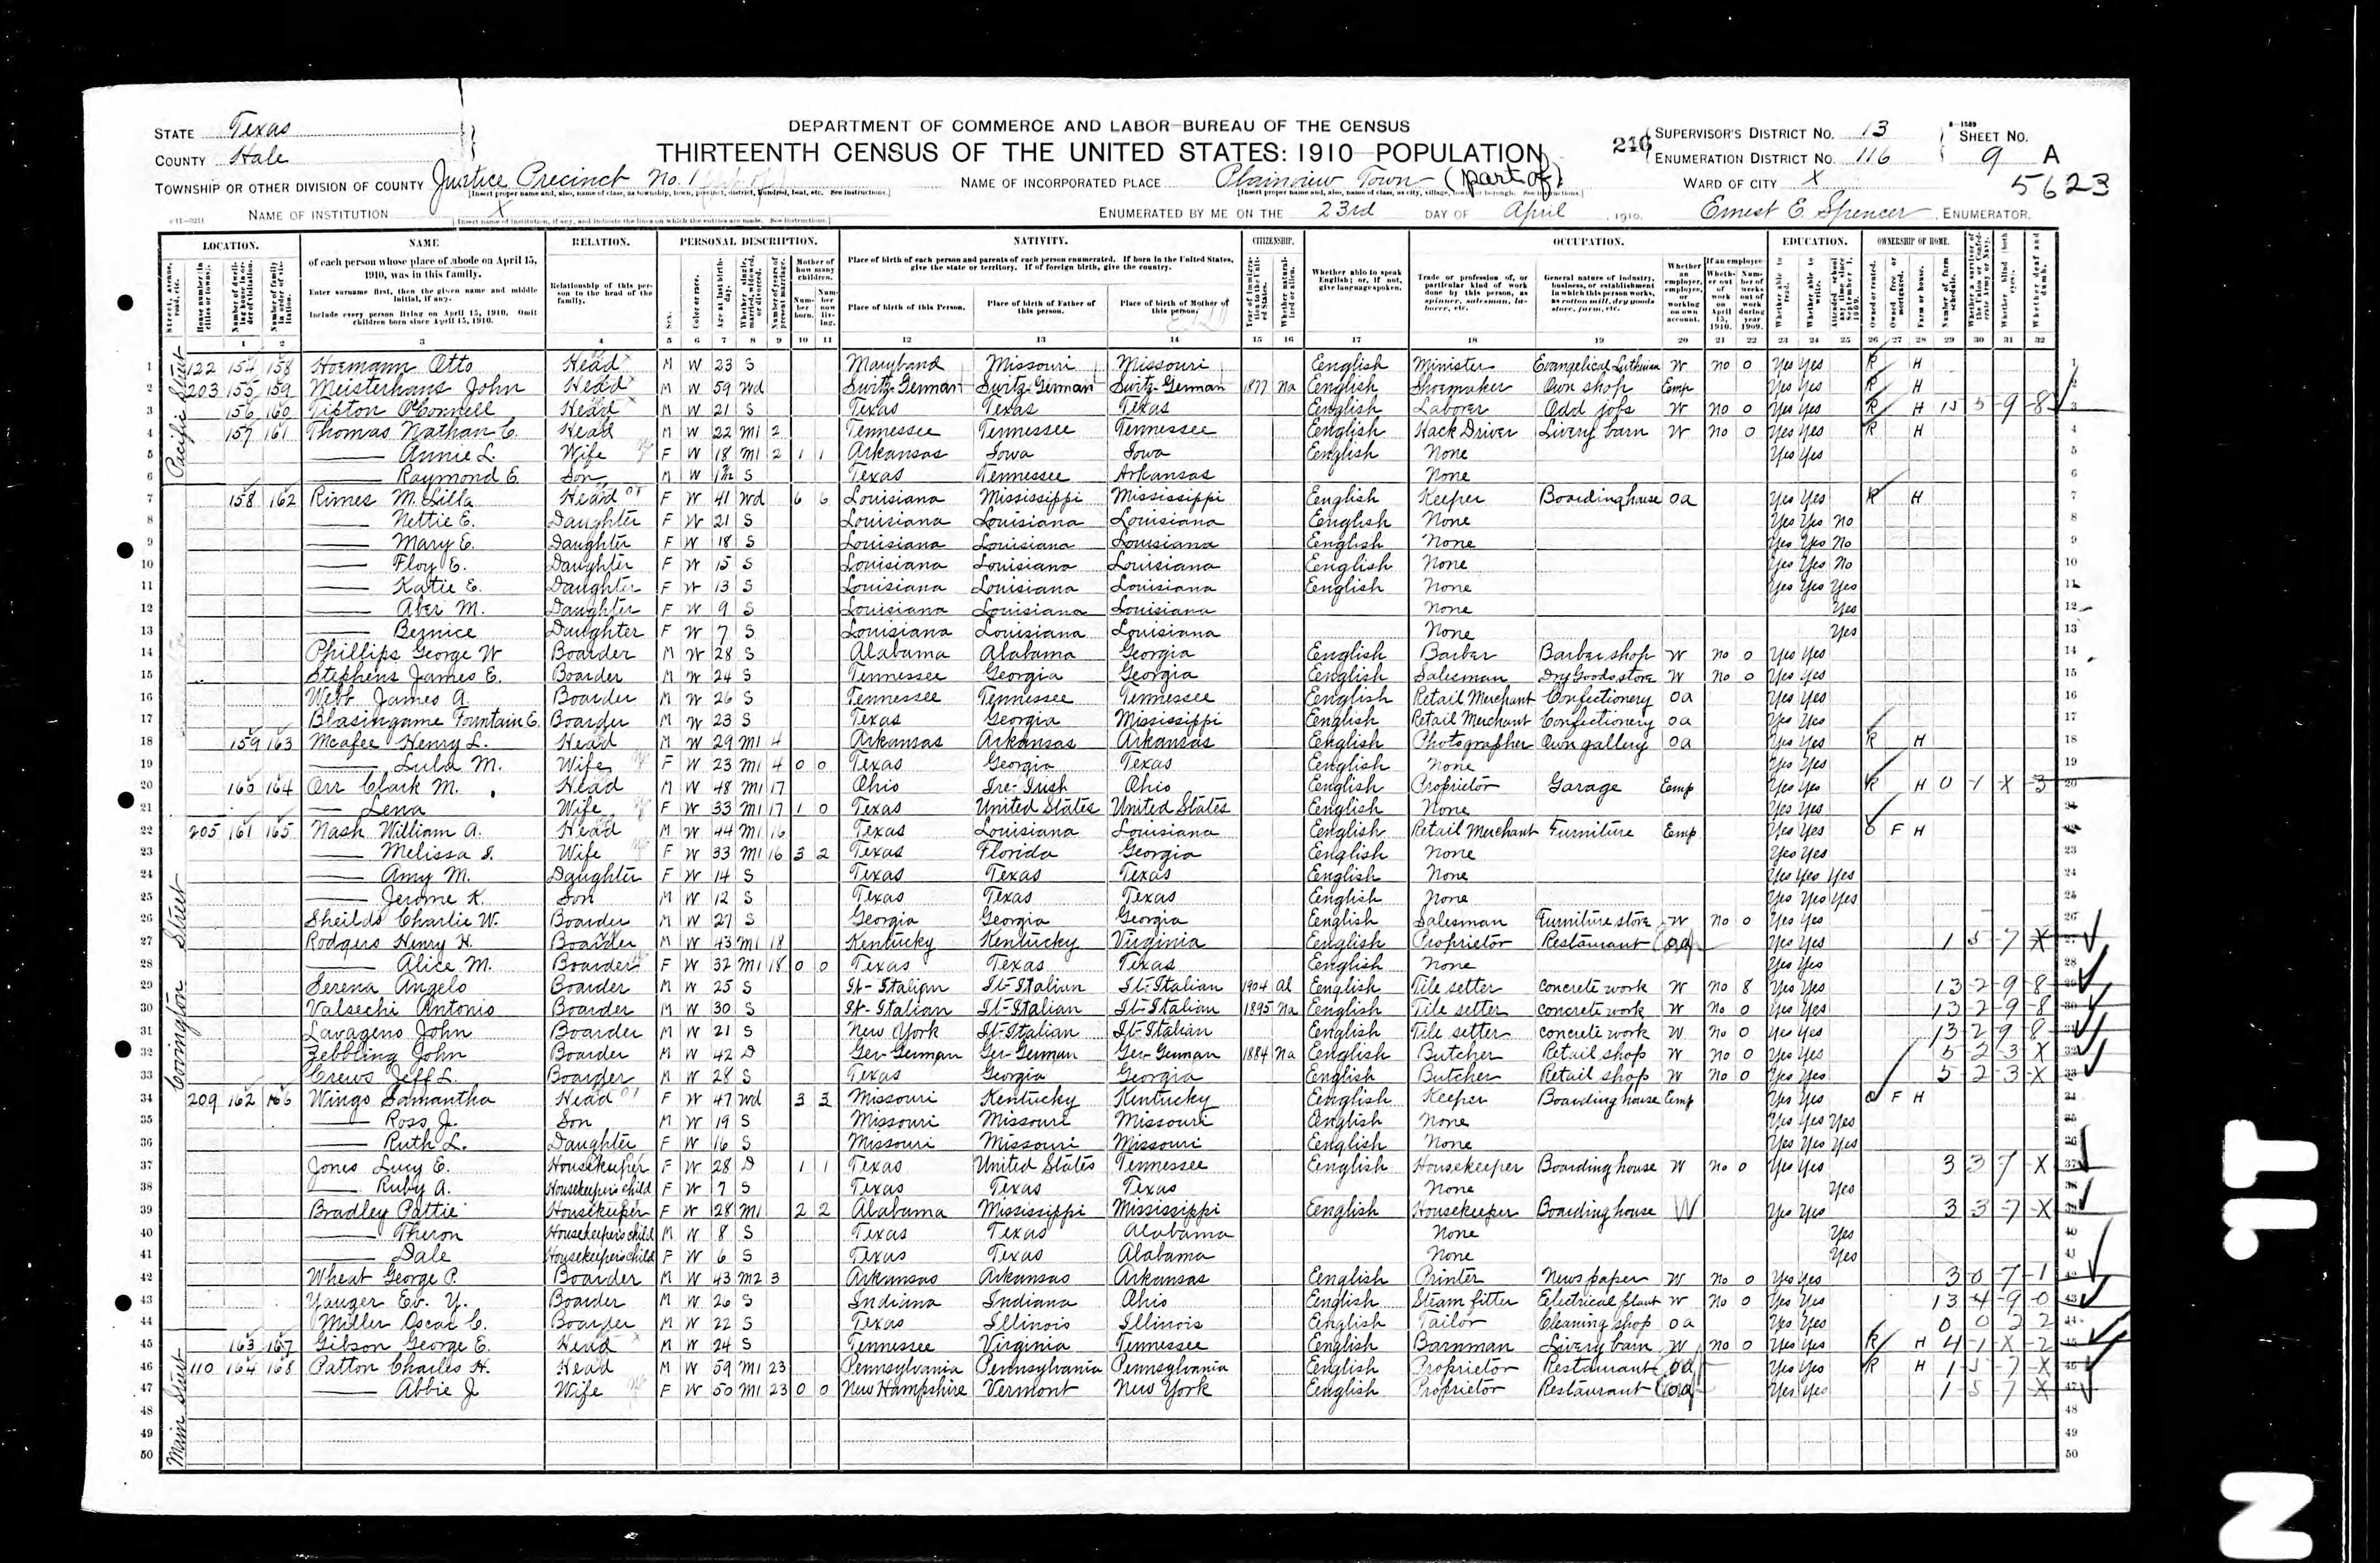 STATE Texas
COUNTY Hale
TOWNSHIP OR OTHER DIVISION OF COUNTY Justice Precinct No. 1
NAME OF INSTITUTION X
DEPARTMENT OF COMMERCE AND LABOR—BUREAU OF THE CENSUS
THIRTEENTH CENSUS OF THE UNITED STATES: 1910—POPULATION
NAME OF INCORPORATED PLACE Plainview Town (part of)
ENUMERATED BY ME ON THE 23rd DAY OF April, 1910. Ernest E. Spencer, ENUMERATOR.
SUPERVISOR'S DISTRICT NO. 13
ENUMERATION DISTRICT NO. 116
WARD OF CITY X
SHEET NO.
9 A
5623
LOCATION. NAME RELATION. PERSONAL DESCRIPTION. NATIVITY. CITIZENSHIP. OCCUPATION. EDUCATION. OWNERSHIP OF HOME.
of each person whose place of abode on April 15, 1910, was in this family.
Enter surname first, then the given name and middle initial, if any.
Include every person living on April 15, 1910. Omit children born since April 15, 1910.
Relationship of this person to the head of the family.
Place of birth of each person and parents of each person enumerated. If born in the United States, give the state or territory. If of foreign birth, give the country.
Place of birth of this Person. Place of birth of Father of this person. Place of birth of Mother of this person.
Whether able to speak English; or, if not, give language spoken.
Trade or profession of, or particular kind of work done by this person, as spinner, salesman, laborer, etc.
General nature of industry, business, or establishment in which this person works, as cotton mill, dry goods store, farm, etc.
1 2 3 4 5 6 7 8 9 10 11 12 13 14 15 16 17 18 19 20 21 22 23 24 25 26 27 28 29 30 31 32
Pacific Street
1 122 154 158 Hormann Otto Head M W 23 S Maryland Missouri Missouri English Minister Evangelical Lutheran W no 0 Yes Yes R H
2 203 155 159 Meisterhans John Head M W 59 Wd Switz-German Switz-German Switz-German 1877 Na English Shoemaker Own shop Emp Yes Yes R H
3 156 160 Tipton O'Connell Head M W 21 S Texas Texas Texas English Laborer Odd jobs W no 0 Yes Yes R H 15 5-9-8
4 157 161 Thomas Nathan C. Head M W 22 M1 2 Tennessee Tennessee Tennessee English Hack Driver Livery barn W no 0 Yes Yes R H
5 —— Annie L. Wife F W 18 M1 2 1 1 Arkansas Iowa Iowa English None Yes Yes
6 —— Raymond E. Son M W S Texas Tennessee Arkansas None
7 158 162 Rimes M. Lilla Head F W 41 Wd 6 6 Louisiana Mississippi Mississippi English Keeper Boarding house OA Yes Yes R H
8 —— Nettie E. Daughter F W 21 S Louisiana Louisiana Louisiana English None Yes Yes No
9 —— Mary E. Daughter F W 18 S Louisiana Louisiana Louisiana English None Yes Yes No
10 —— Floy E. Daughter F W 15 S Louisiana Louisiana Louisiana English None Yes Yes No
11 —— Katie E. Daughter F W 13 S Louisiana Louisiana Louisiana English None Yes Yes Yes
12 —— Aber M. Daughter F W 9 S Louisiana Louisiana Louisiana None Yes
13 —— Bernice Daughter F W 7 S Louisiana Louisiana Louisiana None Yes
14 Phillips George W Boarder M W 28 S Alabama Alabama Georgia English Barber Barber shop W no 0 Yes Yes
15 Stephens James E. Boarder M W 24 S Tennessee Georgia Georgia English Salesman Dry Goods store W no 0 Yes Yes
16 Webb James A Boarder M W 26 S Tennessee Tennessee Tennessee English Retail Merchant Confectionery OA Yes Yes
17 Blasingame Fountain E. Boarder M W 23 S Texas Georgia Mississippi English Retail Merchant Confectionery OA Yes Yes
18 159 163 McAfee Henry L. Head M W 29 M1 4 Arkansas Arkansas Arkansas English Photographer Own gallery OA Yes Yes R H
19 —— Lula M. Wife F W 23 M1 4 0 0 Texas Georgia Texas English None Yes Yes
20 160 164 Orr Clark M. Head M W 48 M1 17 Ohio Ire-Irish Ohio English Proprietor Garage Emp Yes Yes R H 0-1-X-3
21 —— Lena Wife F W 33 M1 17 1 0 Texas United States United States English None Yes Yes
Covington Street
22 205 161 165 Nash William A. Head M W 44 M1 16 Texas Louisiana Louisiana English Retail Merchant Furniture Emp Yes Yes O F H
23 —— Melissa S. Wife F W 33 M1 16 3 2 Texas Florida Georgia English None Yes Yes
24 —— Amy M. Daughter F W 14 S Texas Texas Texas English None Yes Yes Yes
25 —— Jerome K. Son M W 12 S Texas Texas Texas English None Yes Yes Yes
26 Sheilds Charlie W. Boarder M W 27 S Georgia Georgia Georgia English Salesman Furniture store W no 0 Yes Yes
27 Rodgers Henry H. Boarder M W 43 M1 18 Kentucky Kentucky Virginia English Proprietor Restaurant OA Yes Yes 1 5-7-X
28 —— Alice M. Boarder F W 32 M1 18 0 0 Texas Texas Texas English None Yes Yes
29 Serena Angelo Boarder M W 25 S It-Italian It-Italian It-Italian 1904 Al English Tile setter concrete work W No 8 Yes Yes 13-2-9-8
30 Valsechi Antonio Boarder M W 30 S It-Italian It-Italian It-Italian 1895 Na English Tile setter concrete work W No 0 Yes Yes 13-2-9-8
31 Lavageno John Boarder M W 21 S New York It-Italian It-Italian English Tile setter concrete work W No 0 Yes Yes 13 2 9 8
32 Zebbling John Boarder M W 42 D Ger-German Ger-German Ger-German 1884 Na English Butcher Retail shop W No 0 Yes Yes 5 2-3-X
33 Crews Jeff L. Boarder M W 28 S Texas Georgia Georgia English Butcher Retail shop W No 0 Yes Yes 5 2-3-X
34 209 162 166 Wingo Samantha Head F W 47 Wd 3 3 Missouri Kentucky Kentucky English Keeper Boarding house Emp Yes Yes O F H
35 —— Ross J. Son M W 19 S Missouri Missouri Missouri English None Yes Yes Yes
36 —— Ruth L. Daughter F W 16 S Missouri Missouri Missouri English None Yes Yes Yes
37 Jones Lucy E. Housekeeper F W 28 D 1 1 Texas United States Tennessee English Housekeeper Boarding house W no 0 Yes Yes 3 3 7-X
38 —— Ruby A. Housekeeper's child F W 7 S Texas Texas Texas None Yes
39 Bradley Pattie Housekeeper F W 28 M1 2 2 Alabama Mississippi Mississippi English Housekeeper Boarding house W Yes Yes 3 3-7-X
40 —— Theron Housekeeper's child M W 8 S Texas Texas Alabama None Yes
41 —— Dale Housekeeper's child F W 6 S Texas Texas Alabama None Yes
42 Wheat George P. Boarder M W 43 M2 3 Arkansas Arkansas Arkansas English Printer Newspaper W No 0 Yes Yes 3 0-7-1
43 Yauger Ev. Y. Boarder M W 26 S Indiana Indiana Ohio English Steam fitter Electrical plant W No 0 Yes Yes 13 4-9-0
44 Miller Oscar C. Boarder M W 22 S Texas Illinois Illinois English Tailor Cleaning shop OA Yes Yes 0 0 2 2
45 163 167 Gibson George E. Head M W 24 S Tennessee Virginia Tennessee English Barnman Livery barn W no 0 Yes Yes R H 4-1-X-2
Main Street
46 110 164 168 Patton Charles H. Head M W 59 M1 23 Pennsylvania Pennsylvania Pennsylvania English Proprietor Restaurant OA Yes Yes R H 1 5-7-X
47 —— Abbie J Wife F W 50 M1 23 0 0 New Hampshire Vermont New York English Proprietor Restaurant OA Yes Yes 1-5-7-X
48
49
50